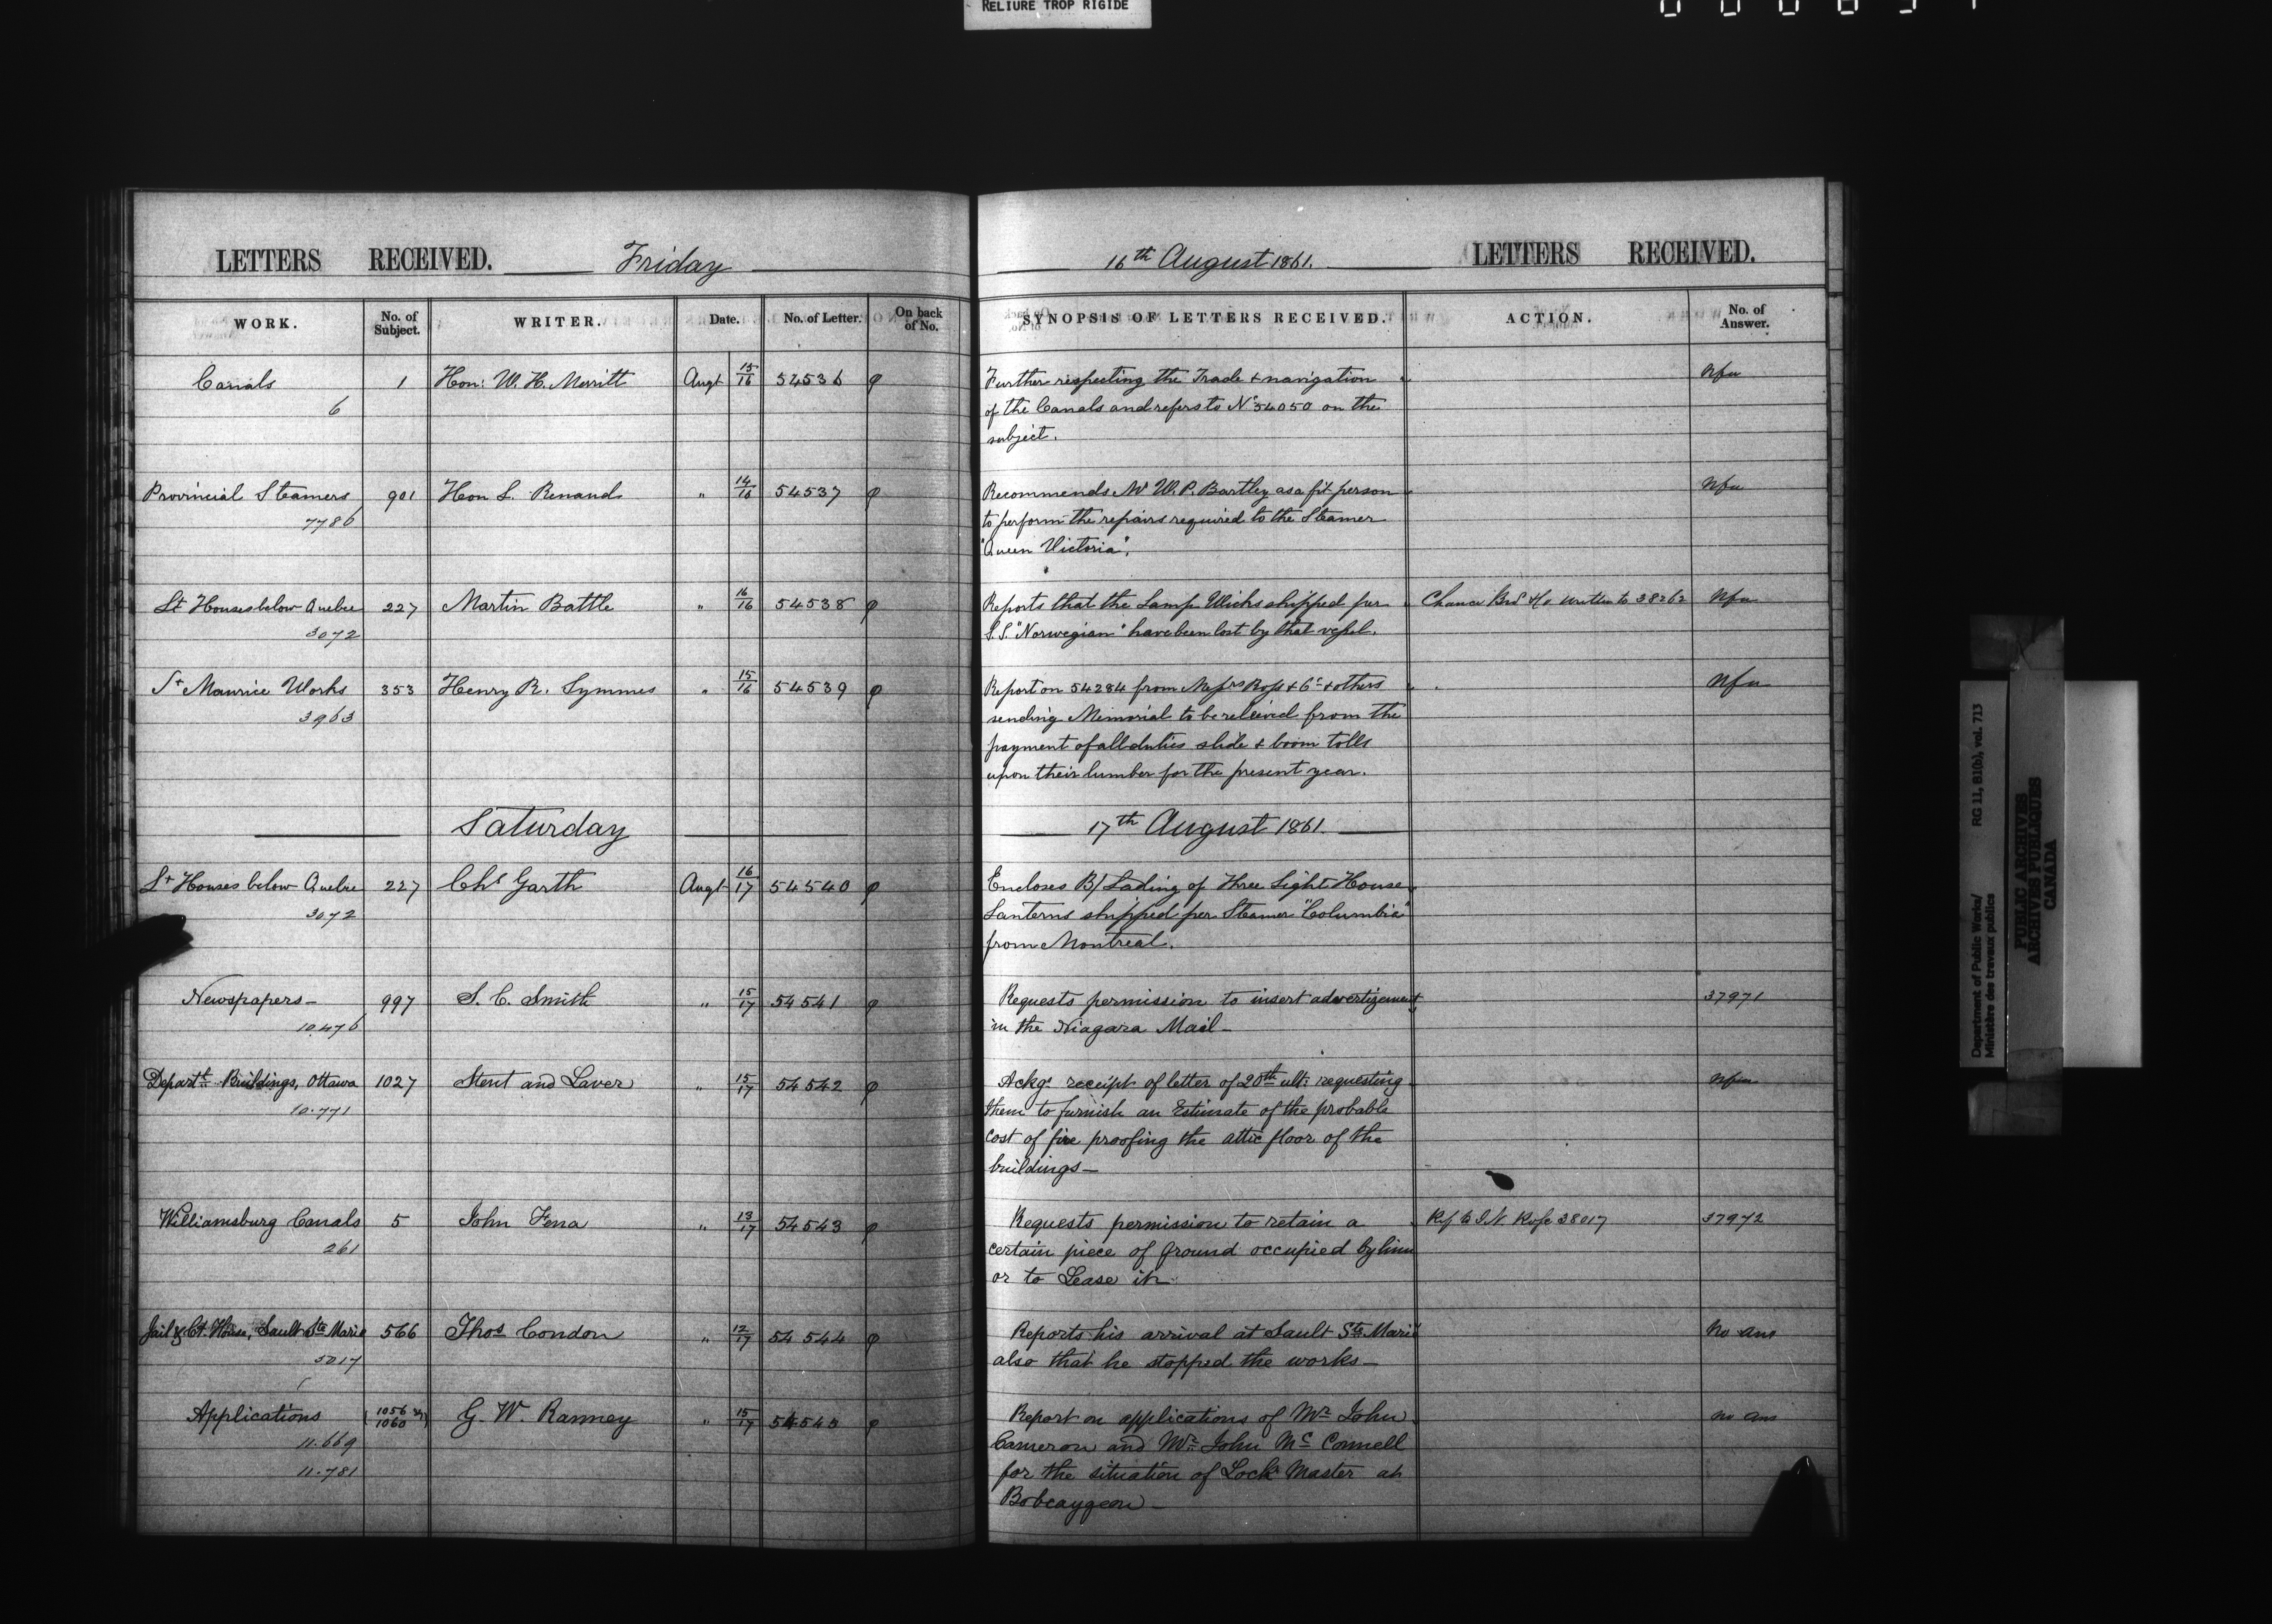 RELIURE TROP RIGIDE
LETTERS RECEIVED. Friday
WORK. No. of Subject. WRITER. Date. No. of Letter. On back of No.
Canals 1 Hon: W. H. Merritt Augt 15/16 54536 φ
6
Provincial Steamers 901 Hon L. Renaud " 14/16 54537 φ
7786
Lt Houses below Quebec 227 Martin Battle " 16/16 54538 φ
3072
St Maurice Works 353 Henry R. Symmes " 15/16 54539 φ
3963
Saturday
Lt Houses below Quebec 227 Chs Garth Augt 16/17 54540 φ
3072
Newspapers 997 S. C. Smith " 15/17 54541 φ
10.476
Departt Buildings, Ottawa 1027 Stent and Laver " 15/17 54542 φ
10.771
Williamsburg Canals 5 John " 13/17 54543 φ
261
Jail & Ct. House, Sault Ste Marie 566 Thos Condon " 12/17 54544 φ
5017
Applications 1056 1060 G. W. Ranney " 15/17 54545 φ
11.669
11.781
16th August 1861. LETTERS RECEIVED.
SYNOPSIS OF LETTERS RECEIVED. ACTION. No. of Answer.
Further respecting the Trade & navigation Nfu
of the Canals and refers to No 54050 on the
subject.
Recommends Mr W. P. Bartley as a fit person Nfu
to perform the repairs required to the Steamer
"Queen Victoria".
Reports that the Lamp Wicks shipped per Chance Bros & Co written to 38262 Nfu
S.S. "Norwegian" have been lost by that vessel.
Report on 54284 from Messrs Ross & Co & others Nfu
sending Memorial to be relieved from the
payment of all duties slide & boom tolls
upon their lumber for the present year.
17th August 1861.
Encloses B/Lading of Three Light House
Lanterns shipped per Steamer "Columbia"
from Montreal.
Requests permission to insert advertizement 37971
in the Niagara Mail
Ackgs receipt of letter of 20th ult: requesting Nfu
them to furnish an Estimate of the probable
cost of fire proofing the attic floor of the
buildings
Requests permission to retain a Ref to I. N. Rose 38017 37972
certain piece of ground occupied by him
or to Lease it
Reports his arrival at Sault Ste Marie No ans
also that he stopped the works
Report on applications of Mr John no ans
Cameron and Mr John Mc Connell
for the situation of Lock Master at
Bobcaygeon
Department of Public Works/ RG 11, B1(b), vol. 713
Ministère des travaux publics
PUBLIC ARCHIVES
ARCHIVES PUBLIQUES
CANADA